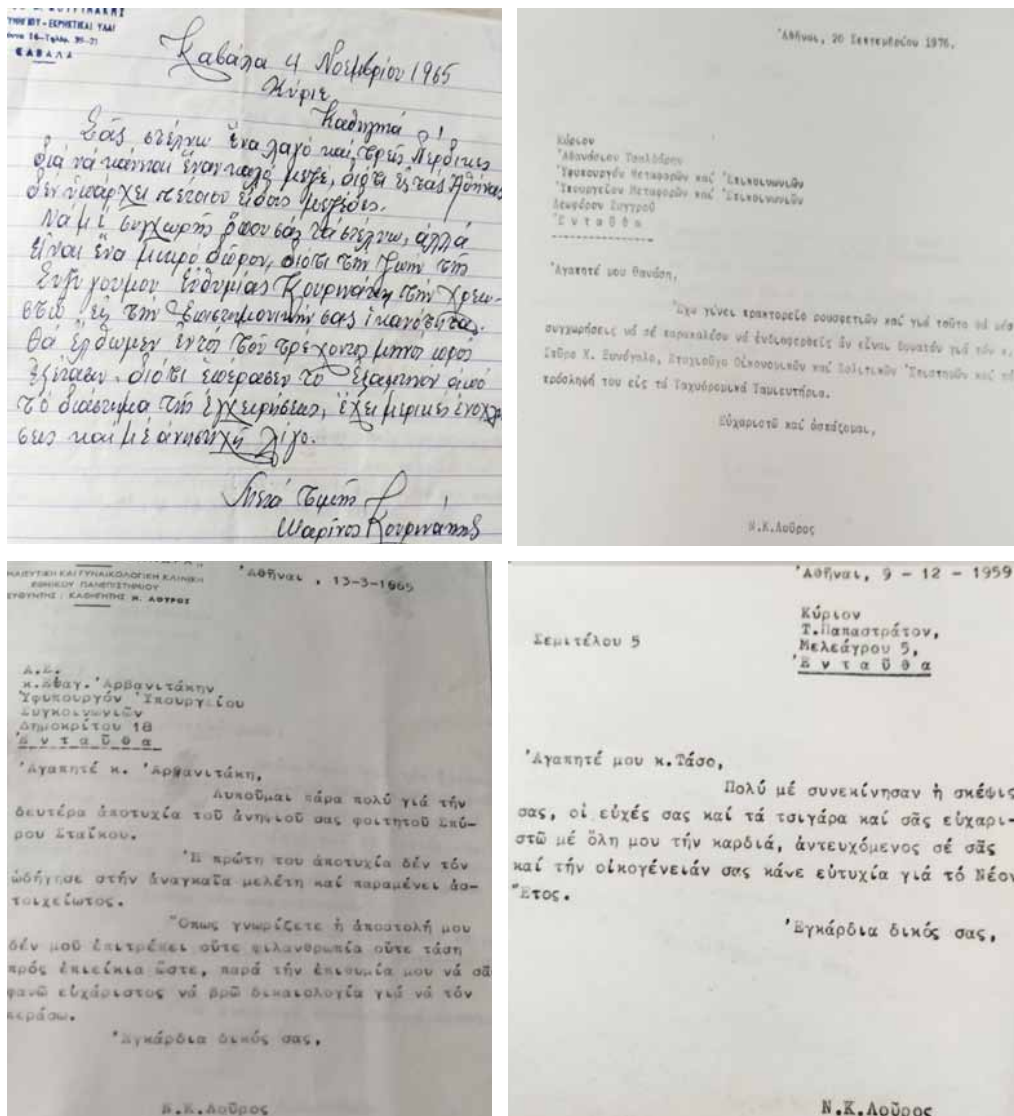 ΚΑΒΑΛΑ
Καβάλα 4 Νοεμβρίου 1965
Κύριε
Καθηγητά!
Σᾶς στέλνω ἕνα λαγό καί τρεῖς Πέρδικες
διά νά κάνητε ἕναν καλό μεζέ, διότι εἰς τάς Ἀθήνας
δεν ὑπάρχει τέτοιου εἴδους μεζέδες.
Νά μέ συγχωρῆς ὅπου σάς τα στέλνω, ἀλλά
Εἶναι ἕνα μικρό δῶρον, διότι τήν ζωήν τῆς
Συζύγου μου Εὐθυμίας τήν χρεω-
στῶ εἰς τήν Ἐπιστημονικήν σας ἱκανότητα.
Θά ἔλθωμεν ἐντός τοῦ τρέχοντος μηνός πρός
ἐξέτασιν. διότι ἐπέρασεν τό ἑξάμηνον ἀπό
τό διάστημα τῆς ἐγχειρήσεως, ἔχει μερικές ἐνοχλή
σεις καί μέ ἀνησυχῆ λίγο.
Μετά τιμῆς
Μαρίνος

Ἀθῆναι, 20 Σεπτεμβρίου 1976.
Κύριον
Ἀθανάσιον Τσαλδάρην
Ὑφυπουργόν Μεταφορῶν καί Ἐπικοινωνιῶν
Ὑπουργεῖον Μεταφορῶν καί Ἐπικοινωνιῶν
Λεωφόρον Συγγροῦ
Ἐ ν τ α ῦ θ α
Ἀγαπητέ μου Θανάση,
Ἔχω γίνει πρακτορεῖο ρουσφετιῶν καί γιά τοῦτο θά μέ
συγχωρήσεις νά σέ παρακαλέσω νά ἐνδιαφερθεῖς ἄν εἶναι δυνατόν γιά τόν κ.
Σπῦρο Χ. Πτυχιοῦχο Οἰκονομικῶν καί Πολιτικῶν Ἐπιστημῶν καί
πρόσληψή του εἰς τά Ταχυδρομικά Ταμιευτήρια.
Εὐχαριστῶ καί ἀσπάζομαι,
Ν.Κ.Λοῦρος

ΜΑΙΕΥΤΙΚΗ ΚΑΙ ΓΥΝΑΙΚΟΛΟΓΙΚΗ ΚΛΙΝΙΚΗ
ΕΘΝΙΚΟΥ ΠΑΝΕΠΙΣΤΗΜΙΟΥ
ΚΑΘΗΓΗΤΗΣ Ν. ΛΟΥΡΟΣ
Ἀθῆναι , 13-3-1965
Α.Ε.
κ.Εὐαγ. Ἀρβανιτάκην
Ὑφυπουργόν Ὑπουργείου
Συγκοινωνιῶν
Δημοκρίτου 18
Ἐ ν τ α ῦ θ α
Ἀγαπητέ κ. Ἀρβανιτάκη,
Λυποῦμαι πάρα πολύ γιά τήν
δευτέρα ἀποτυχία τοῦ ἀνηψιοῦ σας φοιτητοῦ Σπύ-
ρου Σταΐκου.
Ἡ πρώτη του ἀποτυχία δέν τόν
ὡδήγησε στήν ἀναγκαῖα μελέτη καί παραμένει ἀσ-
τοιχείωτος.
Ὅπως γνωρίζετε ἡ ἀποστολή μου
δέν μοῦ ἐπιτρέπει οὔτε φιλανθρωπία οὔτε τάση
πρός ἐπιείκια ὥστε, παρά τήν ἐπιθυμία μου νά σᾶ
φανῶ εὐχάριστος νά βρῶ δικαιολογία γιά νά τόν
περάσω.
Ἐγκάρδια δικός σας,
Ν.Κ.Λοῦρος

Ἀθῆναι, 9 - 12 - 1959
Σεμιτέλου 5
Κύριον
Τ.Παπαστράτον,
Μελεάγρου 5,
Ἐ ν τ α ῦ θ α
Ἀγαπητέ μου κ.Τάσο,
Πολύ μέ συνεκίνησαν ἡ σκέψις
σας, οἱ εὐχές σας καί τά τσιγάρα καί σᾶς εὐχαρι-
στῶ μέ ὅλη μου τήν καρδιά, ἀντευχόμενος σέ σᾶς
καί τήν οἰκογένειάν σας κάνε εὐτυχία γιά τό Νέον
Ἔτος.
Ἐγκάρδια δικός σας,
Ν.Κ.Λοῦρος